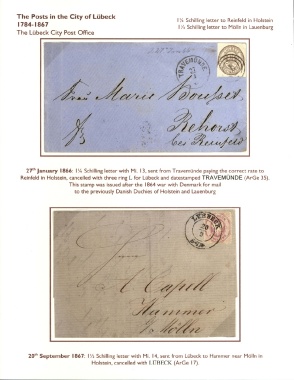 The Posts in the City of Lübeck
1784-1867
The Lübeck City Post Office
1½ Schilling letter to Reinfeld in Holstein
1½ Schilling letter to Mölln in Lauenburg
TRAVEMÜNDE
27
Frau Marie Bousset
Rehorst
bei Reinfeld
27th January 1866: 1¼ Schilling letter with Mi. 13, sent from Travemünde paying the correct rate to
Reinfeld in Holstein, cancelled with three ring L for Lübeck and datestamped TRAVEMÜNDE (ArGe 35).
This stamp was issued after the 1864 war with Denmark for mail
to the previously Danish Duchies of Holstein and Lauenburg
LUBECK
20
9
A Capell
Hammer
b/ Mölln
20th September 1867: 1½ Schilling letter with Mi. 14, sent from Lübeck to Hammer near Mölln in
Holstein, cancelled with LUBECK (ArGe 17).